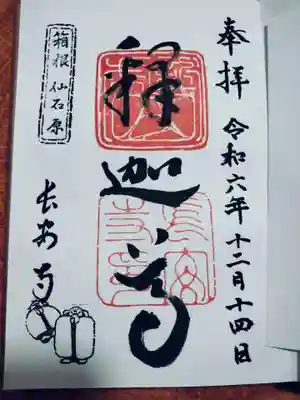 奉拝
令和六年十二月十四日
釋迦尊
箱根仙石原
長安寺
長安
寺印